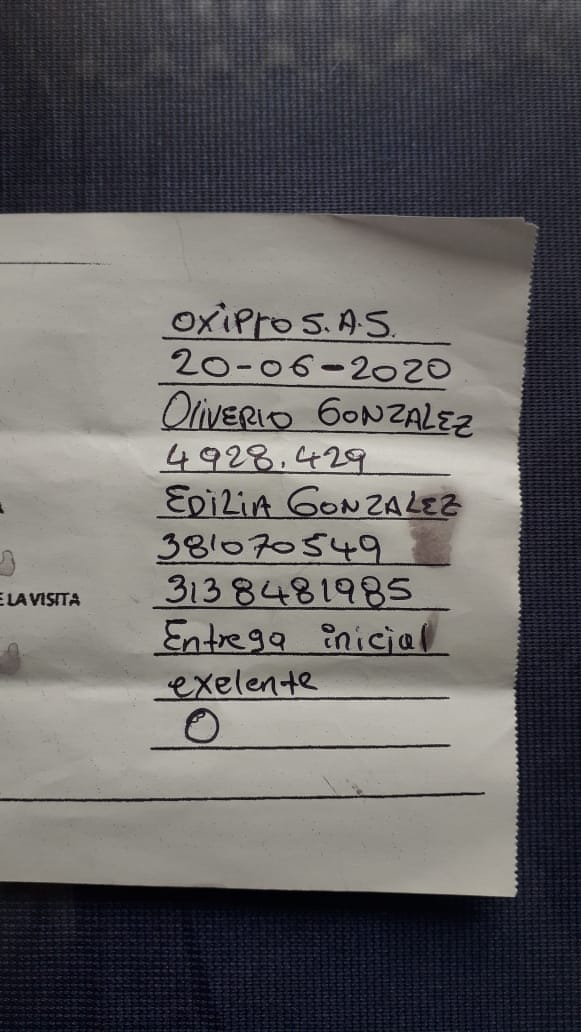 OXIPro S.A.S.
20-06-2020
OliVERIO GONZALEZ
4928.429
EDiLiA GONZALEZ
381070549
3138481985
E LA VISITA
Entrega inicial
exelente
O